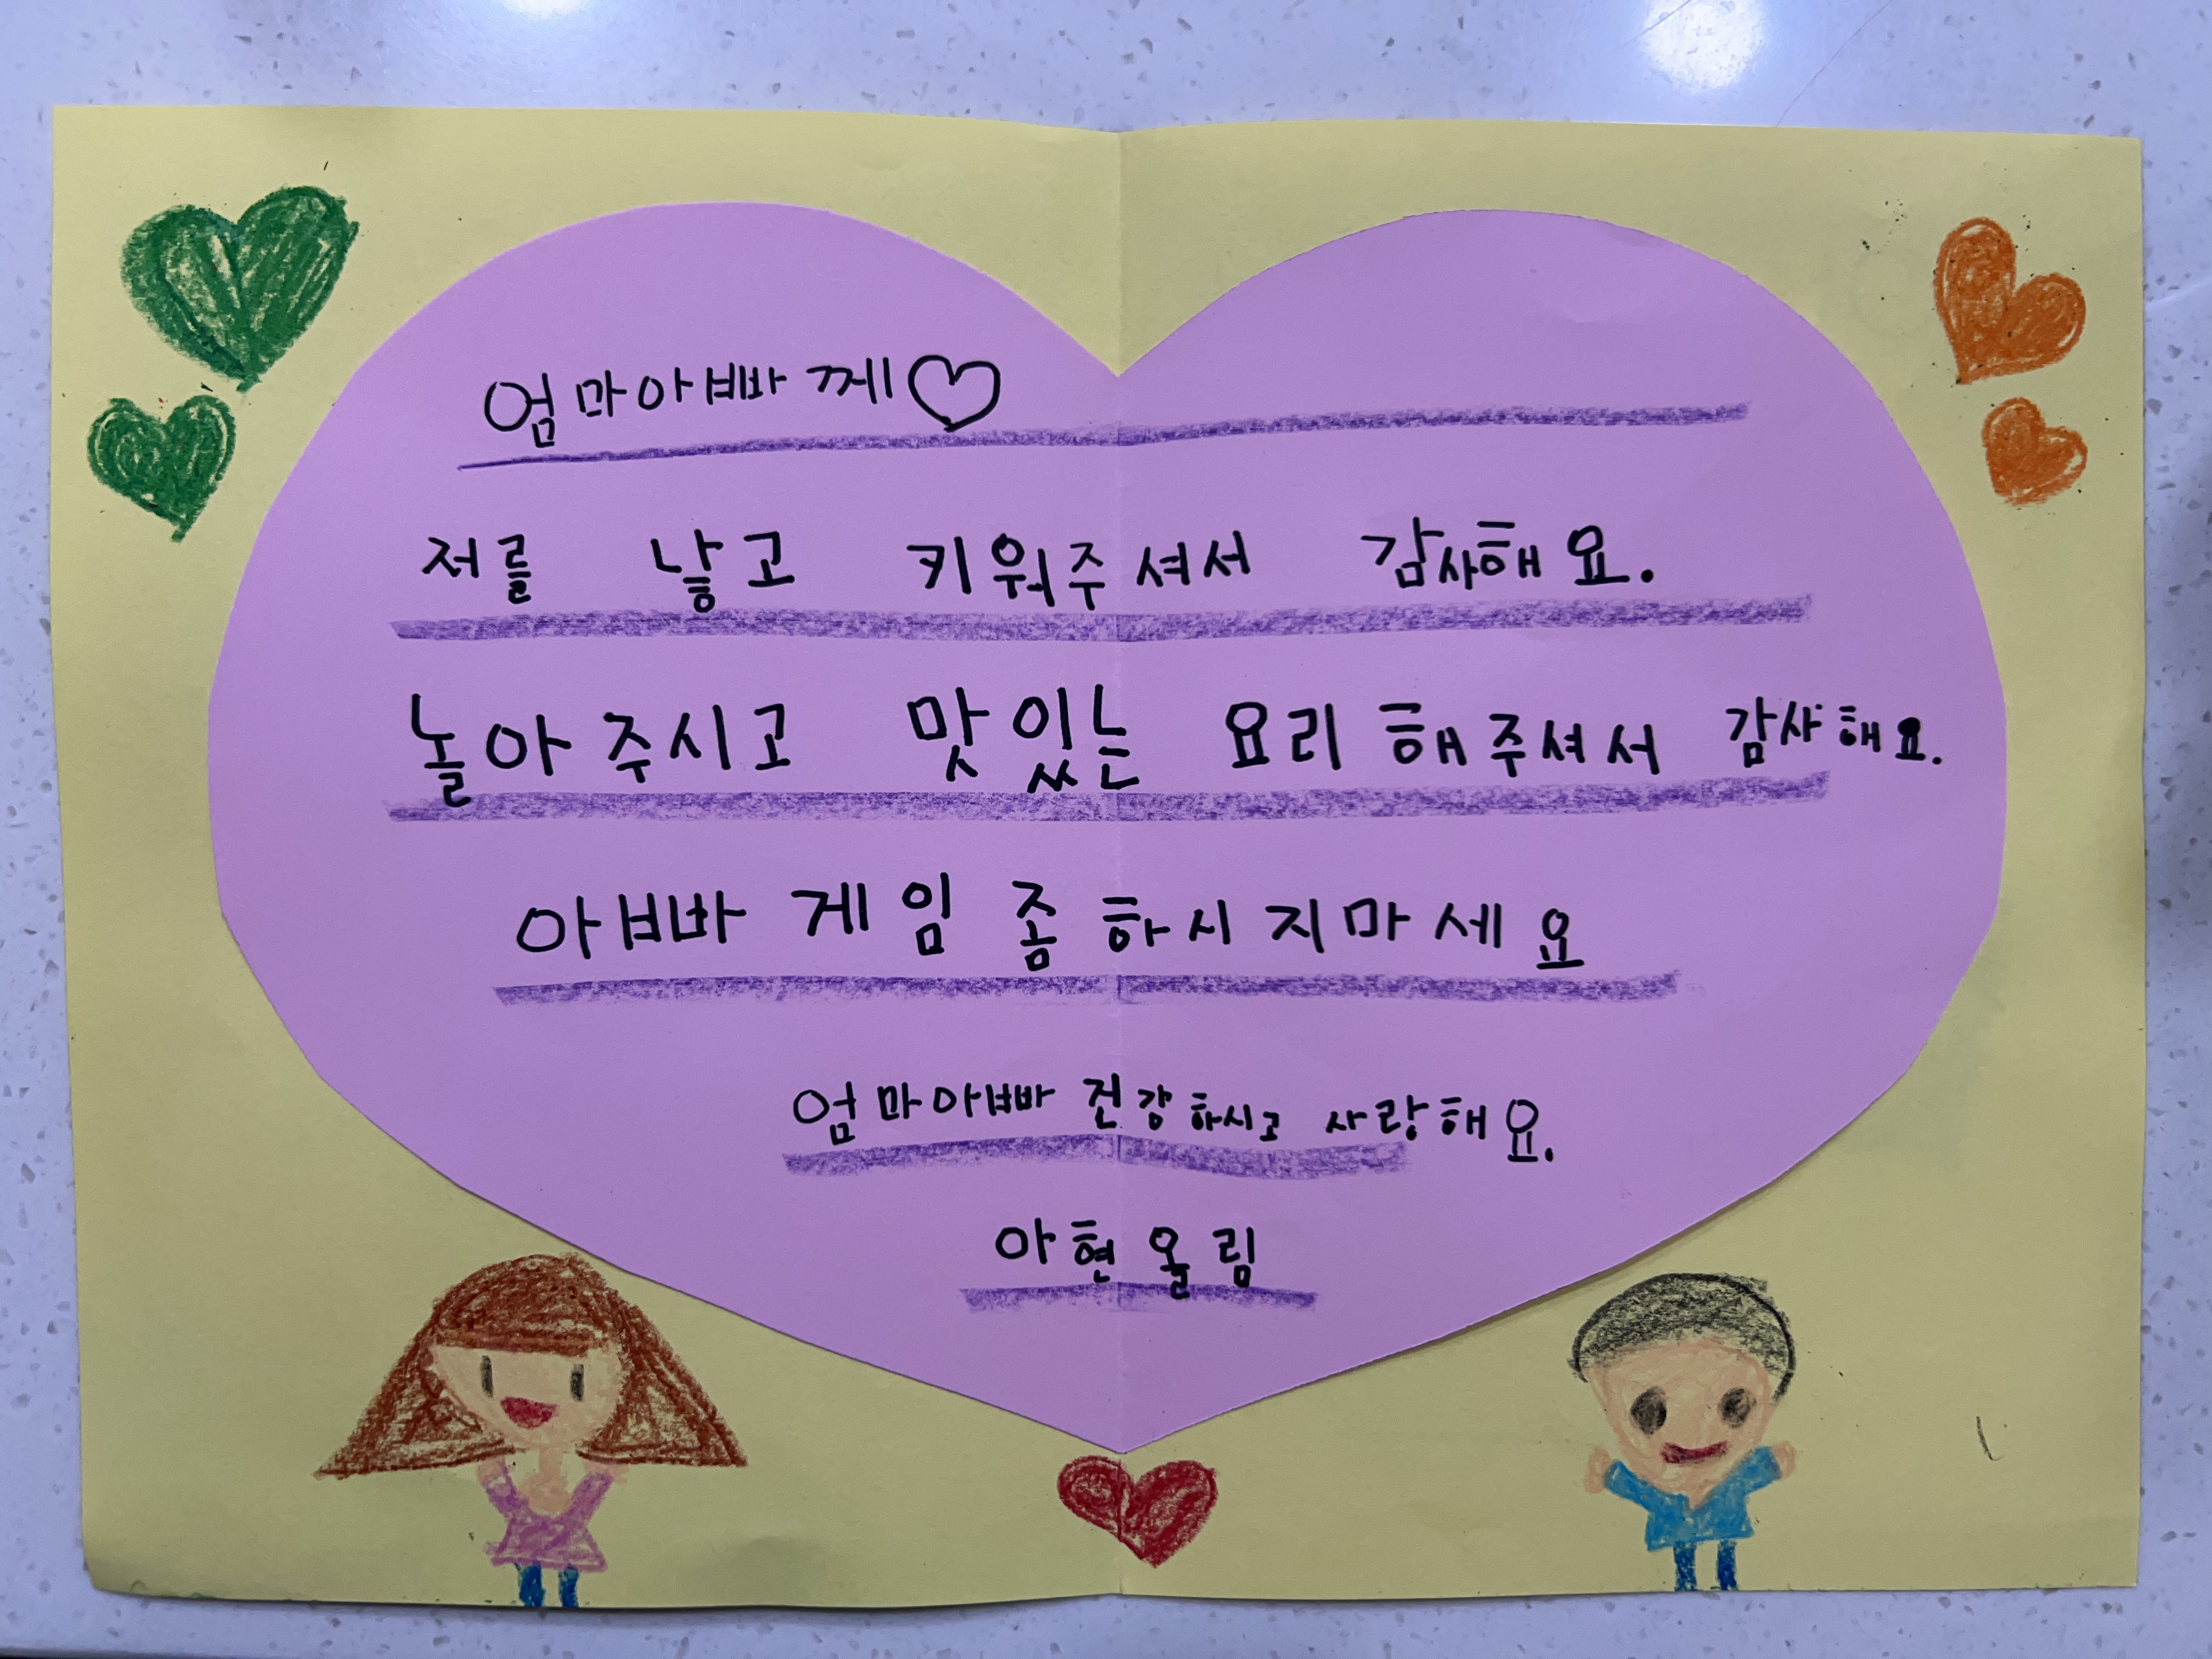 엄마아빠께♡
저를 낳고 키워주셔서 감사해요.
놀아주시고 맛있는 요리해주셔서 감사해요.
아빠 게임 좀 하시지마세요
엄마아빠 건강하시고 사랑해요.
아현올림